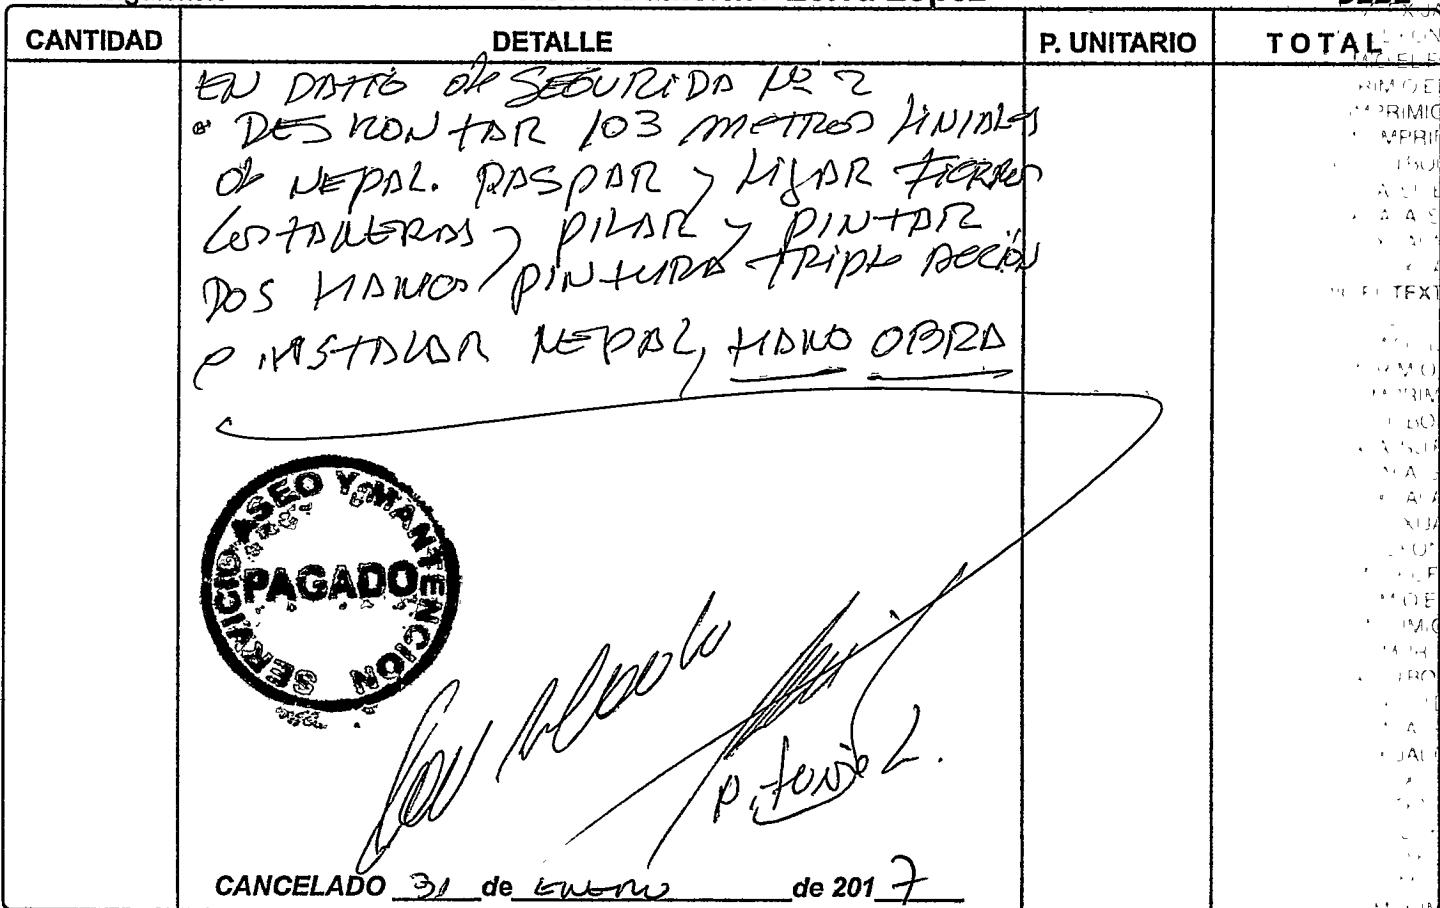 CANTIDAD DETALLE P. UNITARIO TOTAL
EN PATIO de SEGURIDA Nº 2
• DESMONTAR 103 METROS LINIALES
de NEPAL. RASPAR y LIJAR FIERROS
COSTANERAS y PILAR y PINTAR
DOS MANOS PINTURA TRIPLE ACCIÓN
e INSTALAR NEPAL, MANO OBRA
SERVICIO ASEO Y MANTENCION
PAGADO
CANCELADO 31 de ENERO de 2017